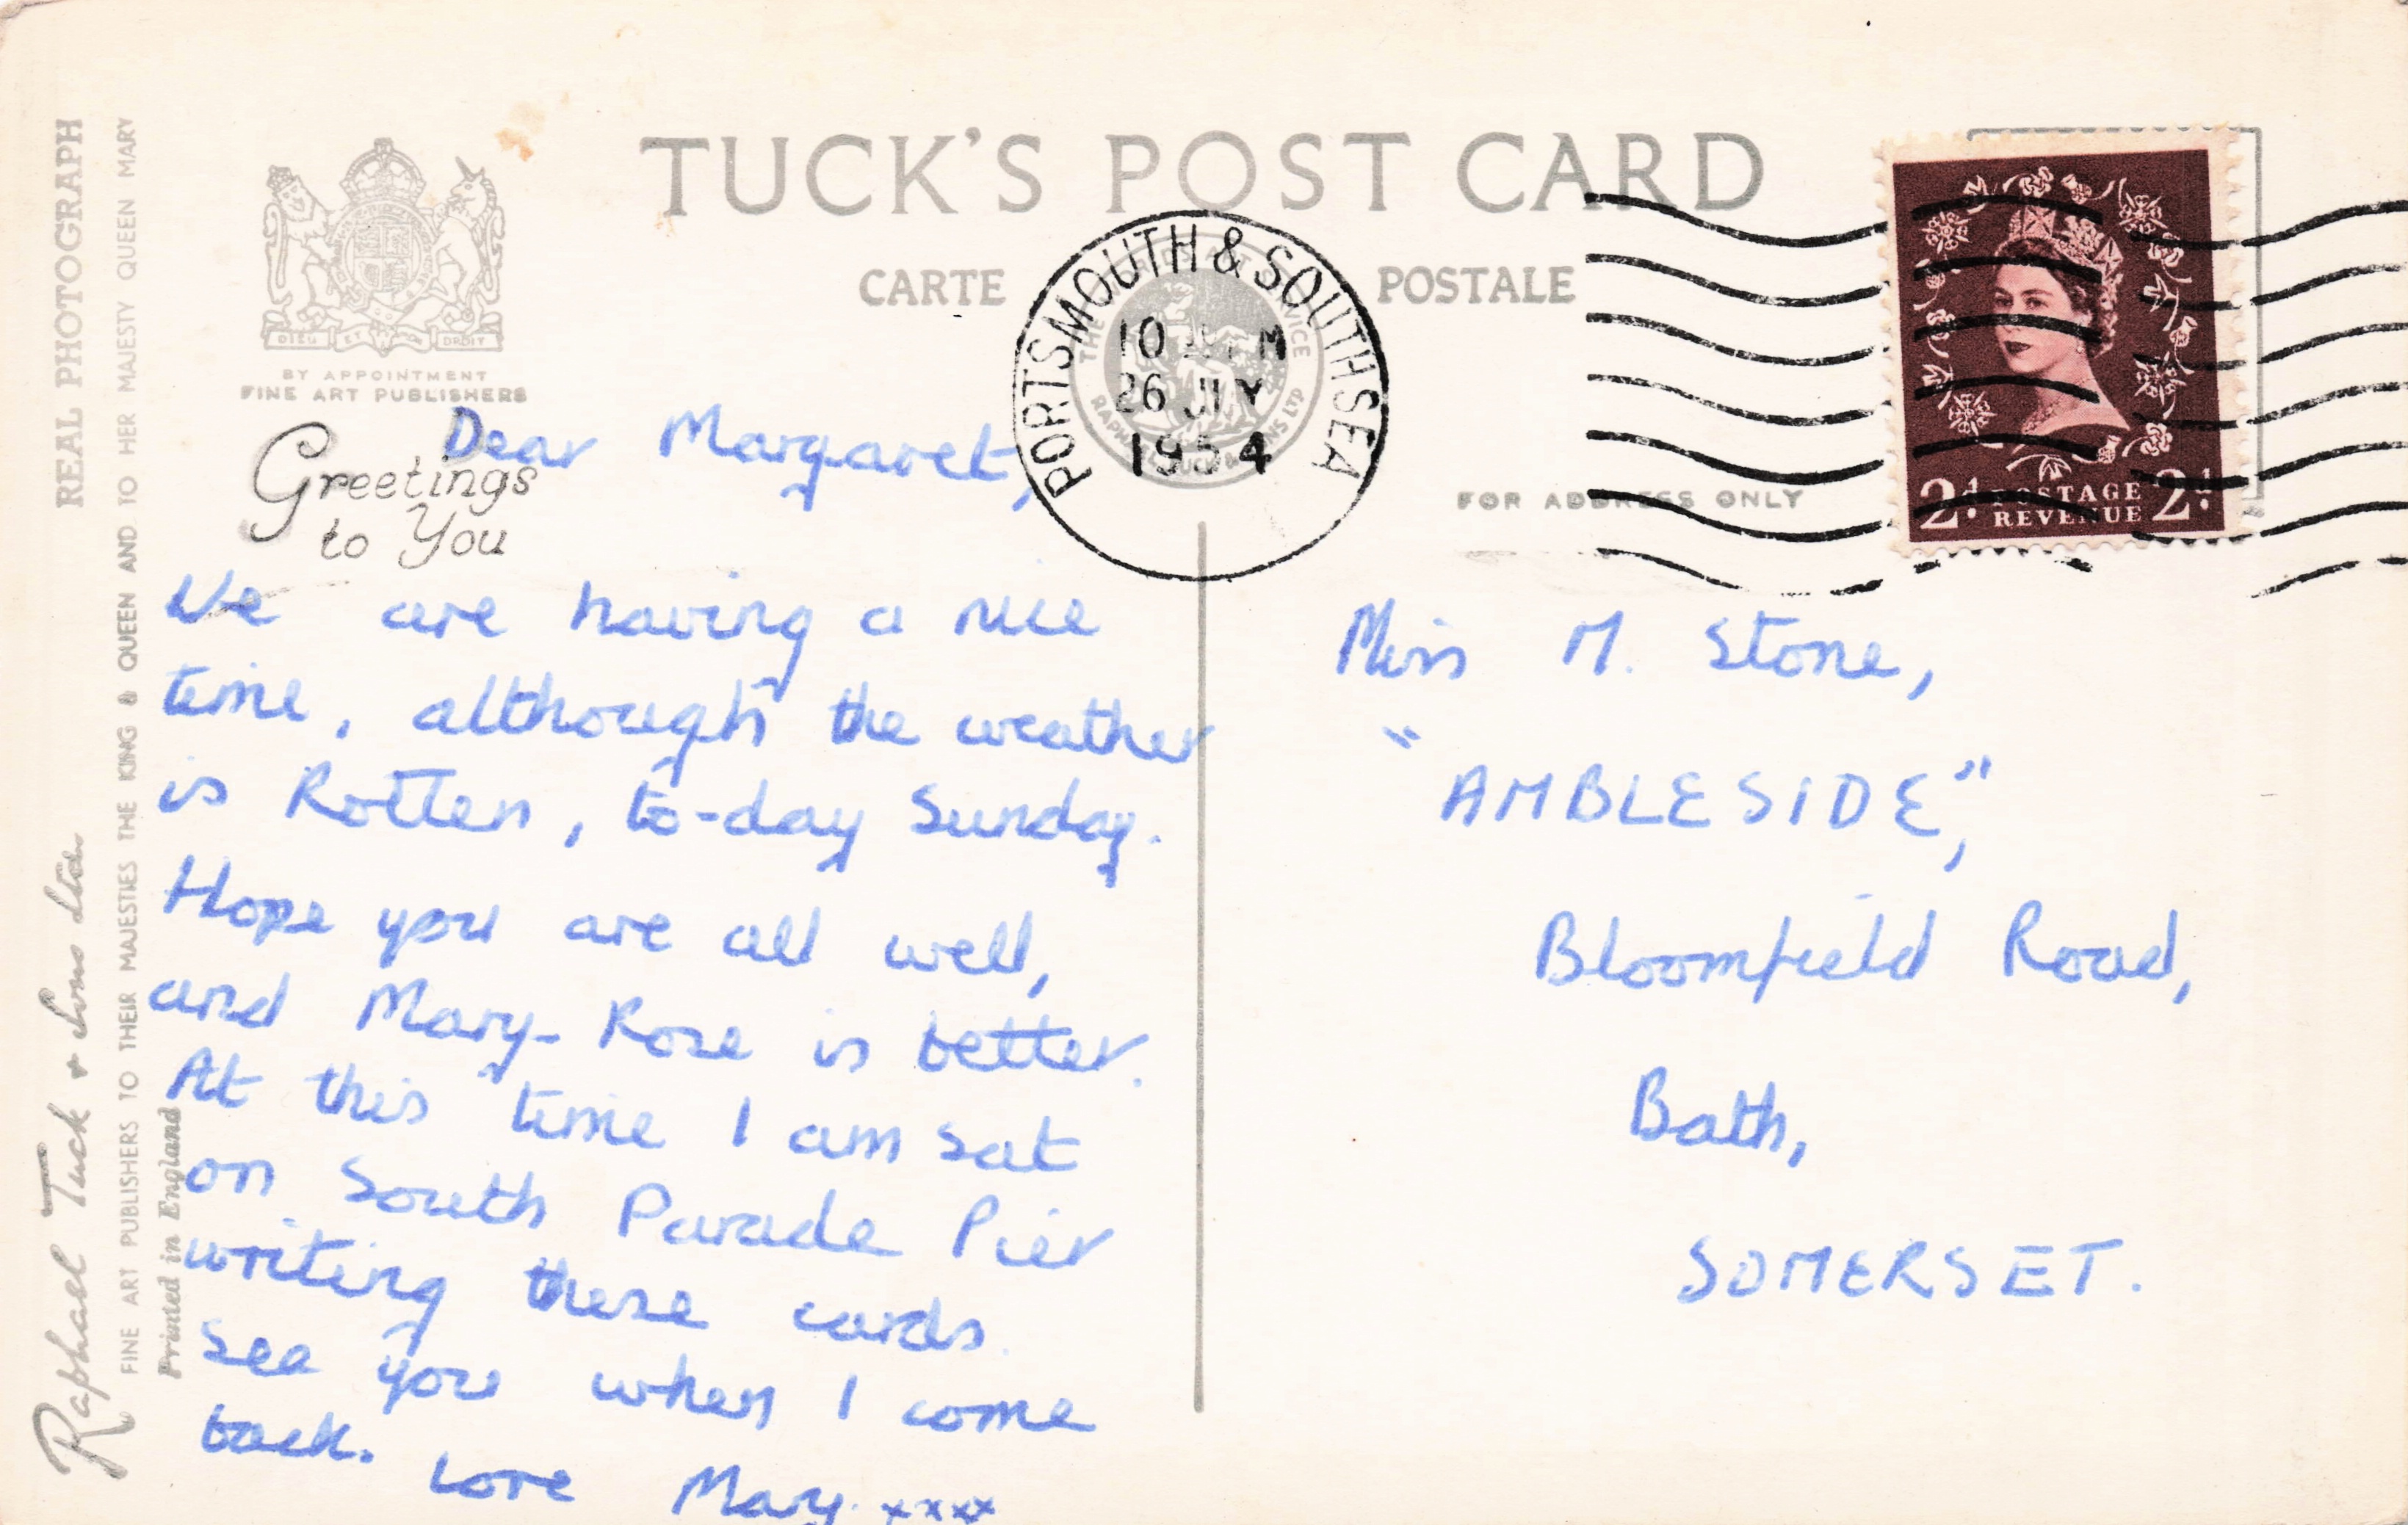 TUCK'S POST CARD
CARTE POSTALE
REAL PHOTOGRAPH
FINE ART PUBLISHERS TO THEIR MAJESTIES THE KING & QUEEN AND TO HER MAJESTY QUEEN MARY
Raphael Tuck & Sons Ltd.
Printed in England
DIEU ET MON DROIT
BY APPOINTMENT
FINE ART PUBLISHERS
Greetings
to You
PORTSMOUTH & SOUTHSEA
10
26 JLY
1954
FOR ADDRESS ONLY
2d. POSTAGE 2d.
REVENUE
Dear Margaret,
We are having a nice
time, although the weather
is Rotten, to-day Sunday.
Hope you are all well,
and Mary-Rose is better.
At this time I am sat
on South Parade Pier
writing these cards.
See you when I come
back.
Love Mary. xxxx
Miss M. Stone,
"AMBLESIDE,"
Bloomfield Road,
Bath,
SOMERSET.